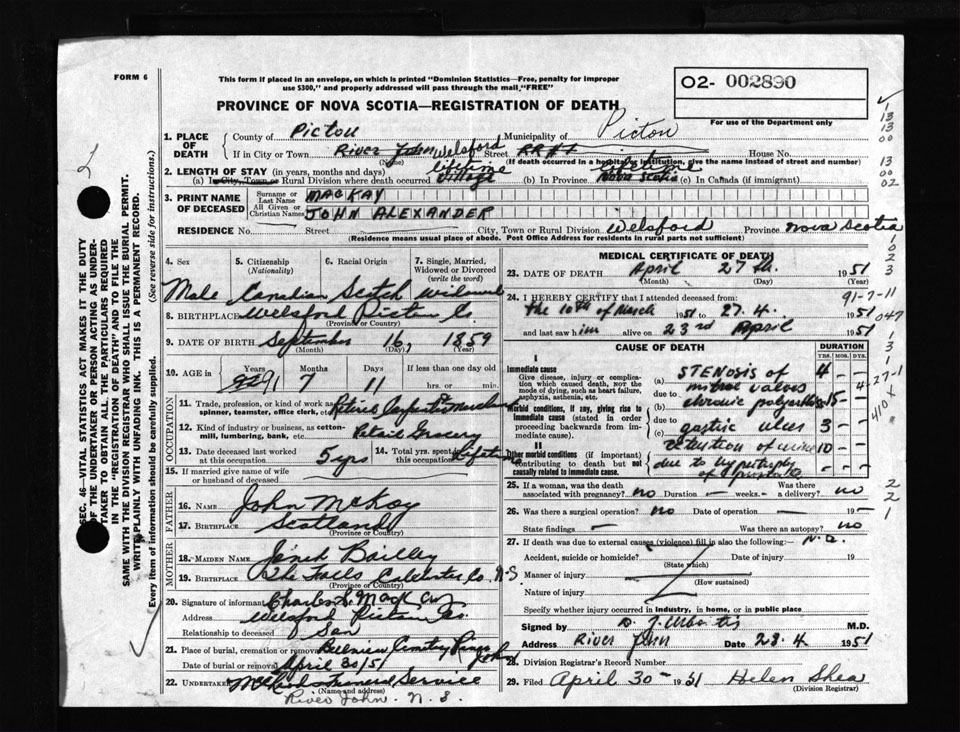 FORM 6
This form if placed in an envelope, on which is printed "Dominion Statistics—Free, penalty for improper
use $300," and properly addressed will pass through the mail, "FREE"
O2- 002890
For use of the Department only
PROVINCE OF NOVA SCOTIA—REGISTRATION OF DEATH
1. PLACE OF DEATH
County of Pictou Municipality of Pictou
If in City or Town River John Welsford Street RR#1 House No.
(Name) (If death occurred in a hospital or institution, give the name instead of street and number)
2. LENGTH OF STAY (in years, months and days)
(a) In City, Town or Rural Division where death occurred lifetime Village (b) In Province lifetime Nova Scotia (c) In Canada (if immigrant)
3. PRINT NAME OF DECEASED
Surname or Last Name MACKAY
All Given or Christian Names JOHN ALEXANDER
RESIDENCE No. Street City, Town or Rural Division Welsford Province Nova Scotia
(Residence means usual place of abode. Post Office Address for residents in rural parts not sufficient)
4. Sex
5. Citizenship (Nationality)
6. Racial Origin
7. Single, Married, Widowed or Divorced (write the word)
Male Canadian Scotch widowed
8. BIRTHPLACE Welsford Pictou Co
(Province or Country)
9. DATE OF BIRTH September 16, 1859
(Month) (Day) (Year)
10. AGE in Years Months Days If less than one day old
91 7 11 hrs. or min.
OCCUPATION
11. Trade, profession, or kind of work as spinner, teamster, office clerk, etc. Retired Merchant
12. Kind of industry or business, as cotton-mill, lumbering, bank, etc. Retail Grocery
13. Date deceased last worked at this occupation 5 yrs
14. Total yrs. spent in this occupation Lifetime
15. If married give name of wife or husband of deceased
FATHER
16. NAME John McKay
17. BIRTHPLACE Scotland
(Province or Country)
MOTHER
18. MAIDEN NAME Bailley
19. BIRTHPLACE The Falls Colchester Co, N.S
(Province or Country)
20. Signature of informant Charles MacKay
Address Welsford Pictou Co.
Relationship to deceased Son
21. Place of burial, cremation or removal Cemetery River John
Date of burial or removal April 30/51
22. UNDERTAKER Funeral Service
(Name and address)
River John. N. S.
MEDICAL CERTIFICATE OF DEATH
23. DATE OF DEATH April 27th. 1951
(Month) (Day) (Year)
24. I HEREBY CERTIFY that I attended deceased from:
the 10th of March 1951 to 27. 4. 1951
and last saw him alive on 23rd April 1951
CAUSE OF DEATH DURATION
YRS. MOS. DYS.
I
Immediate cause
Give disease, injury or complication which caused death, not the mode of dying, such as heart failure, asphyxia, asthenia, etc.
(a) STENOSIS of mitral valves 4 - -
due to
Morbid conditions, if any, giving rise to immediate cause (stated in order proceeding backwards from immediate cause).
(b) chronic 15 - -
due to
(c) gastric ulcer 3 - -
II
Other morbid conditions (if important) contributing to death but not causally related to immediate cause.
retention of urine 10 - -
due to hypertrophy of prostate - - -
25. If a woman, was the death associated with pregnancy? no Duration — weeks. Was there a delivery? no
26. Was there a surgical operation? no Date of operation — 19 —
State findings — Was there an autopsy? no
27. If death was due to external causes (violence) fill in also the following:
Accident, suicide or homicide? Date of injury 19
(State which)
Manner of injury
(How sustained)
Nature of injury
Specify whether injury occurred in industry, in home, or in public place
Signed by M.D.
Address River John Date 28. 4 1951
28. Division Registrar's Record Number
29. Filed April 30 — 1951 Helen Shea
(Division Registrar)
SEC. 46—VITAL STATISTICS ACT MAKES IT THE DUTY
OF THE UNDERTAKER OR PERSON ACTING AS UNDER-
TAKER TO OBTAIN ALL THE PARTICULARS REQUIRED
IN THE "REGISTRATION OF DEATH" AND TO FILE THE
SAME WITH THE DIVISION REGISTRAR WHO SHALL ISSUE THE BURIAL PERMIT.
WRITE PLAINLY WITH UNFADING INK. THIS IS A PERMANENT RECORD.
Every item of information should be carefully supplied. (See reverse side for instructions.)
1
13
13
00
13
00
02
1
0
2
3
91-7-11
047
1
3
1
4-27-1
2
2
1